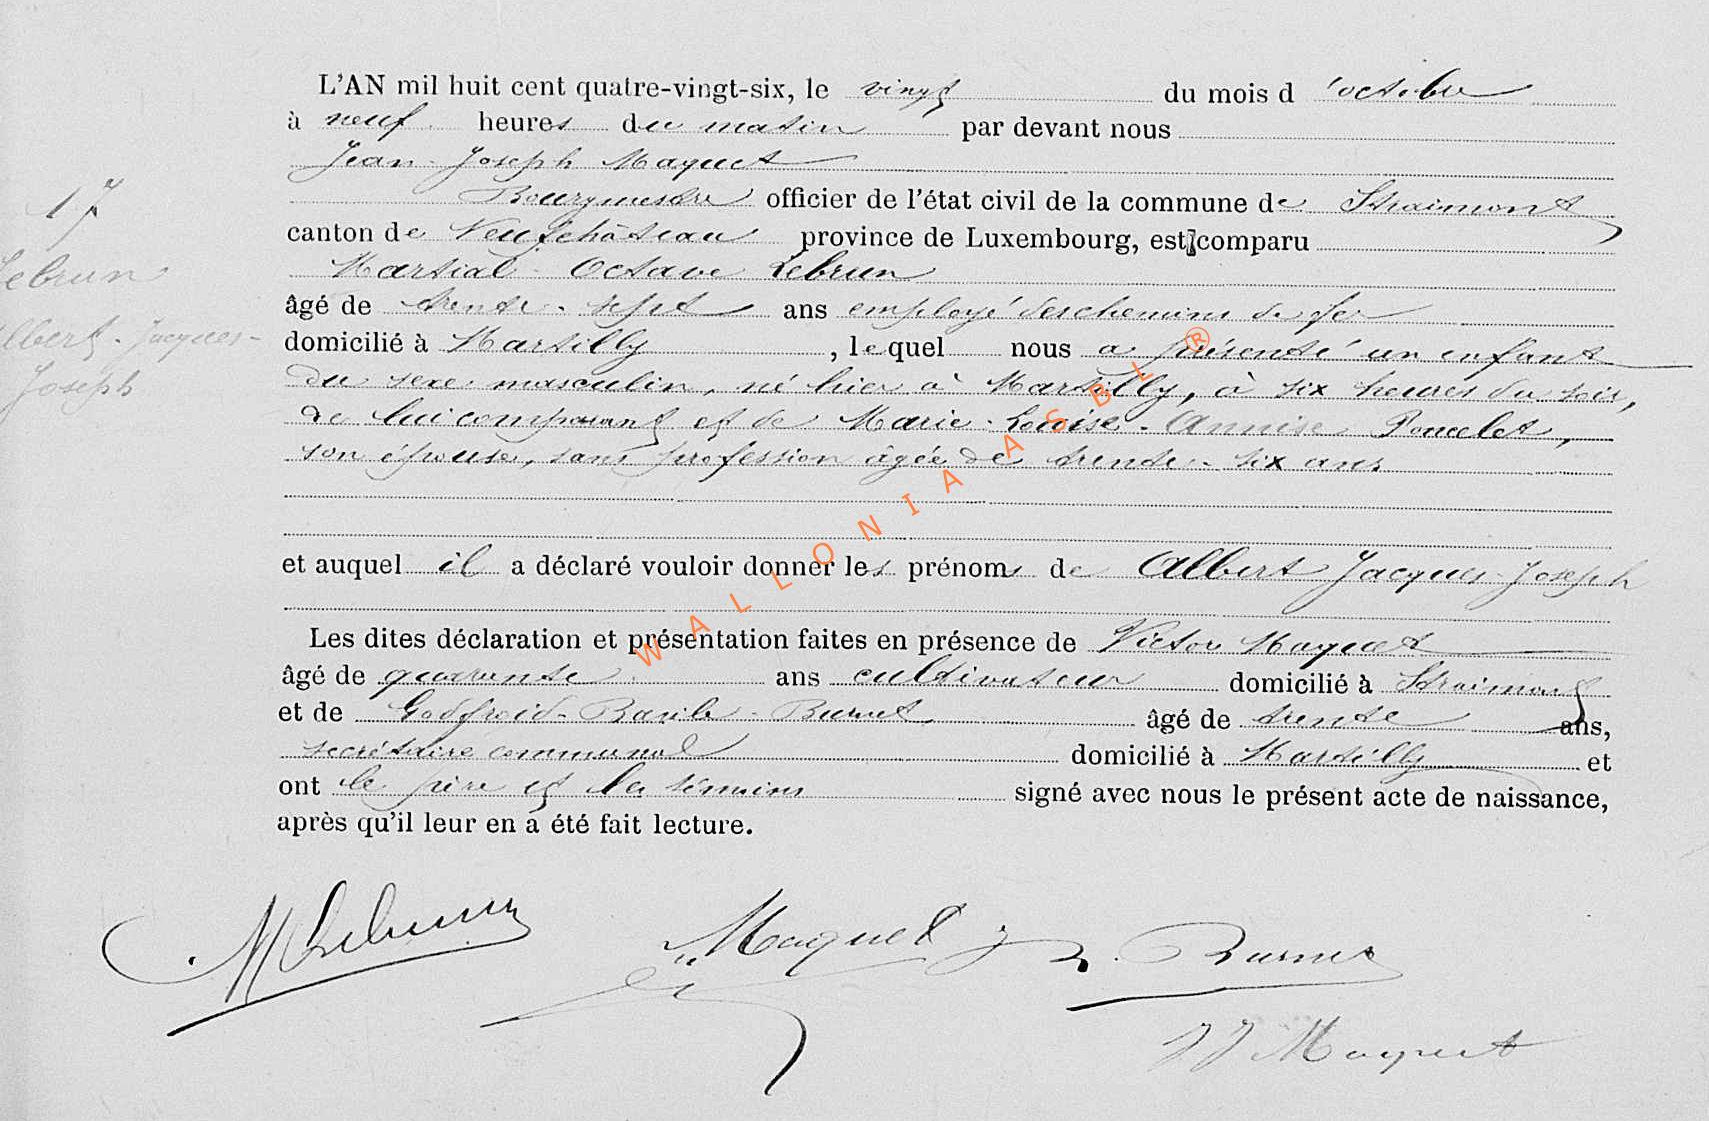 17
Lebrun
Albert-Jacques-
Joseph
L'AN mil huit cent quatre-vingt-six, le vingt du mois d'octobre
à neuf heures du matin par devant nous
Jean-Joseph Maquet
Bourgmestre officier de l'état civil de la commune de Straimont
canton de Neufchâteau province de Luxembourg, est comparu
Martial-Octave Lebrun
âgé de trente-sept ans employé des chemins de fer
domicilié à Martilly, lequel nous a présenté un enfant
du sexe masculin, né hier à Martilly, à six heures du soir,
de lui comparant et de Marie-Louise-Annise Poncelet,
son épouse, sans profession âgée de trente-six ans
et auquel il a déclaré vouloir donner les prénoms de Albert Jacques-Joseph
Les dites déclaration et présentation faites en présence de Victor Maquet
âgé de quarante ans cultivateur domicilié à Straimont
et de Godfroid-Basile-Burnet âgé de trente ans,
secrétaire communal domicilié à Martilly et
ont le père et les témoins signé avec nous le présent acte de naissance,
après qu'il leur en a été fait lecture.
M Lebrun Maquet Burnet
JJ Maquet
WALLONIA ASBL ®